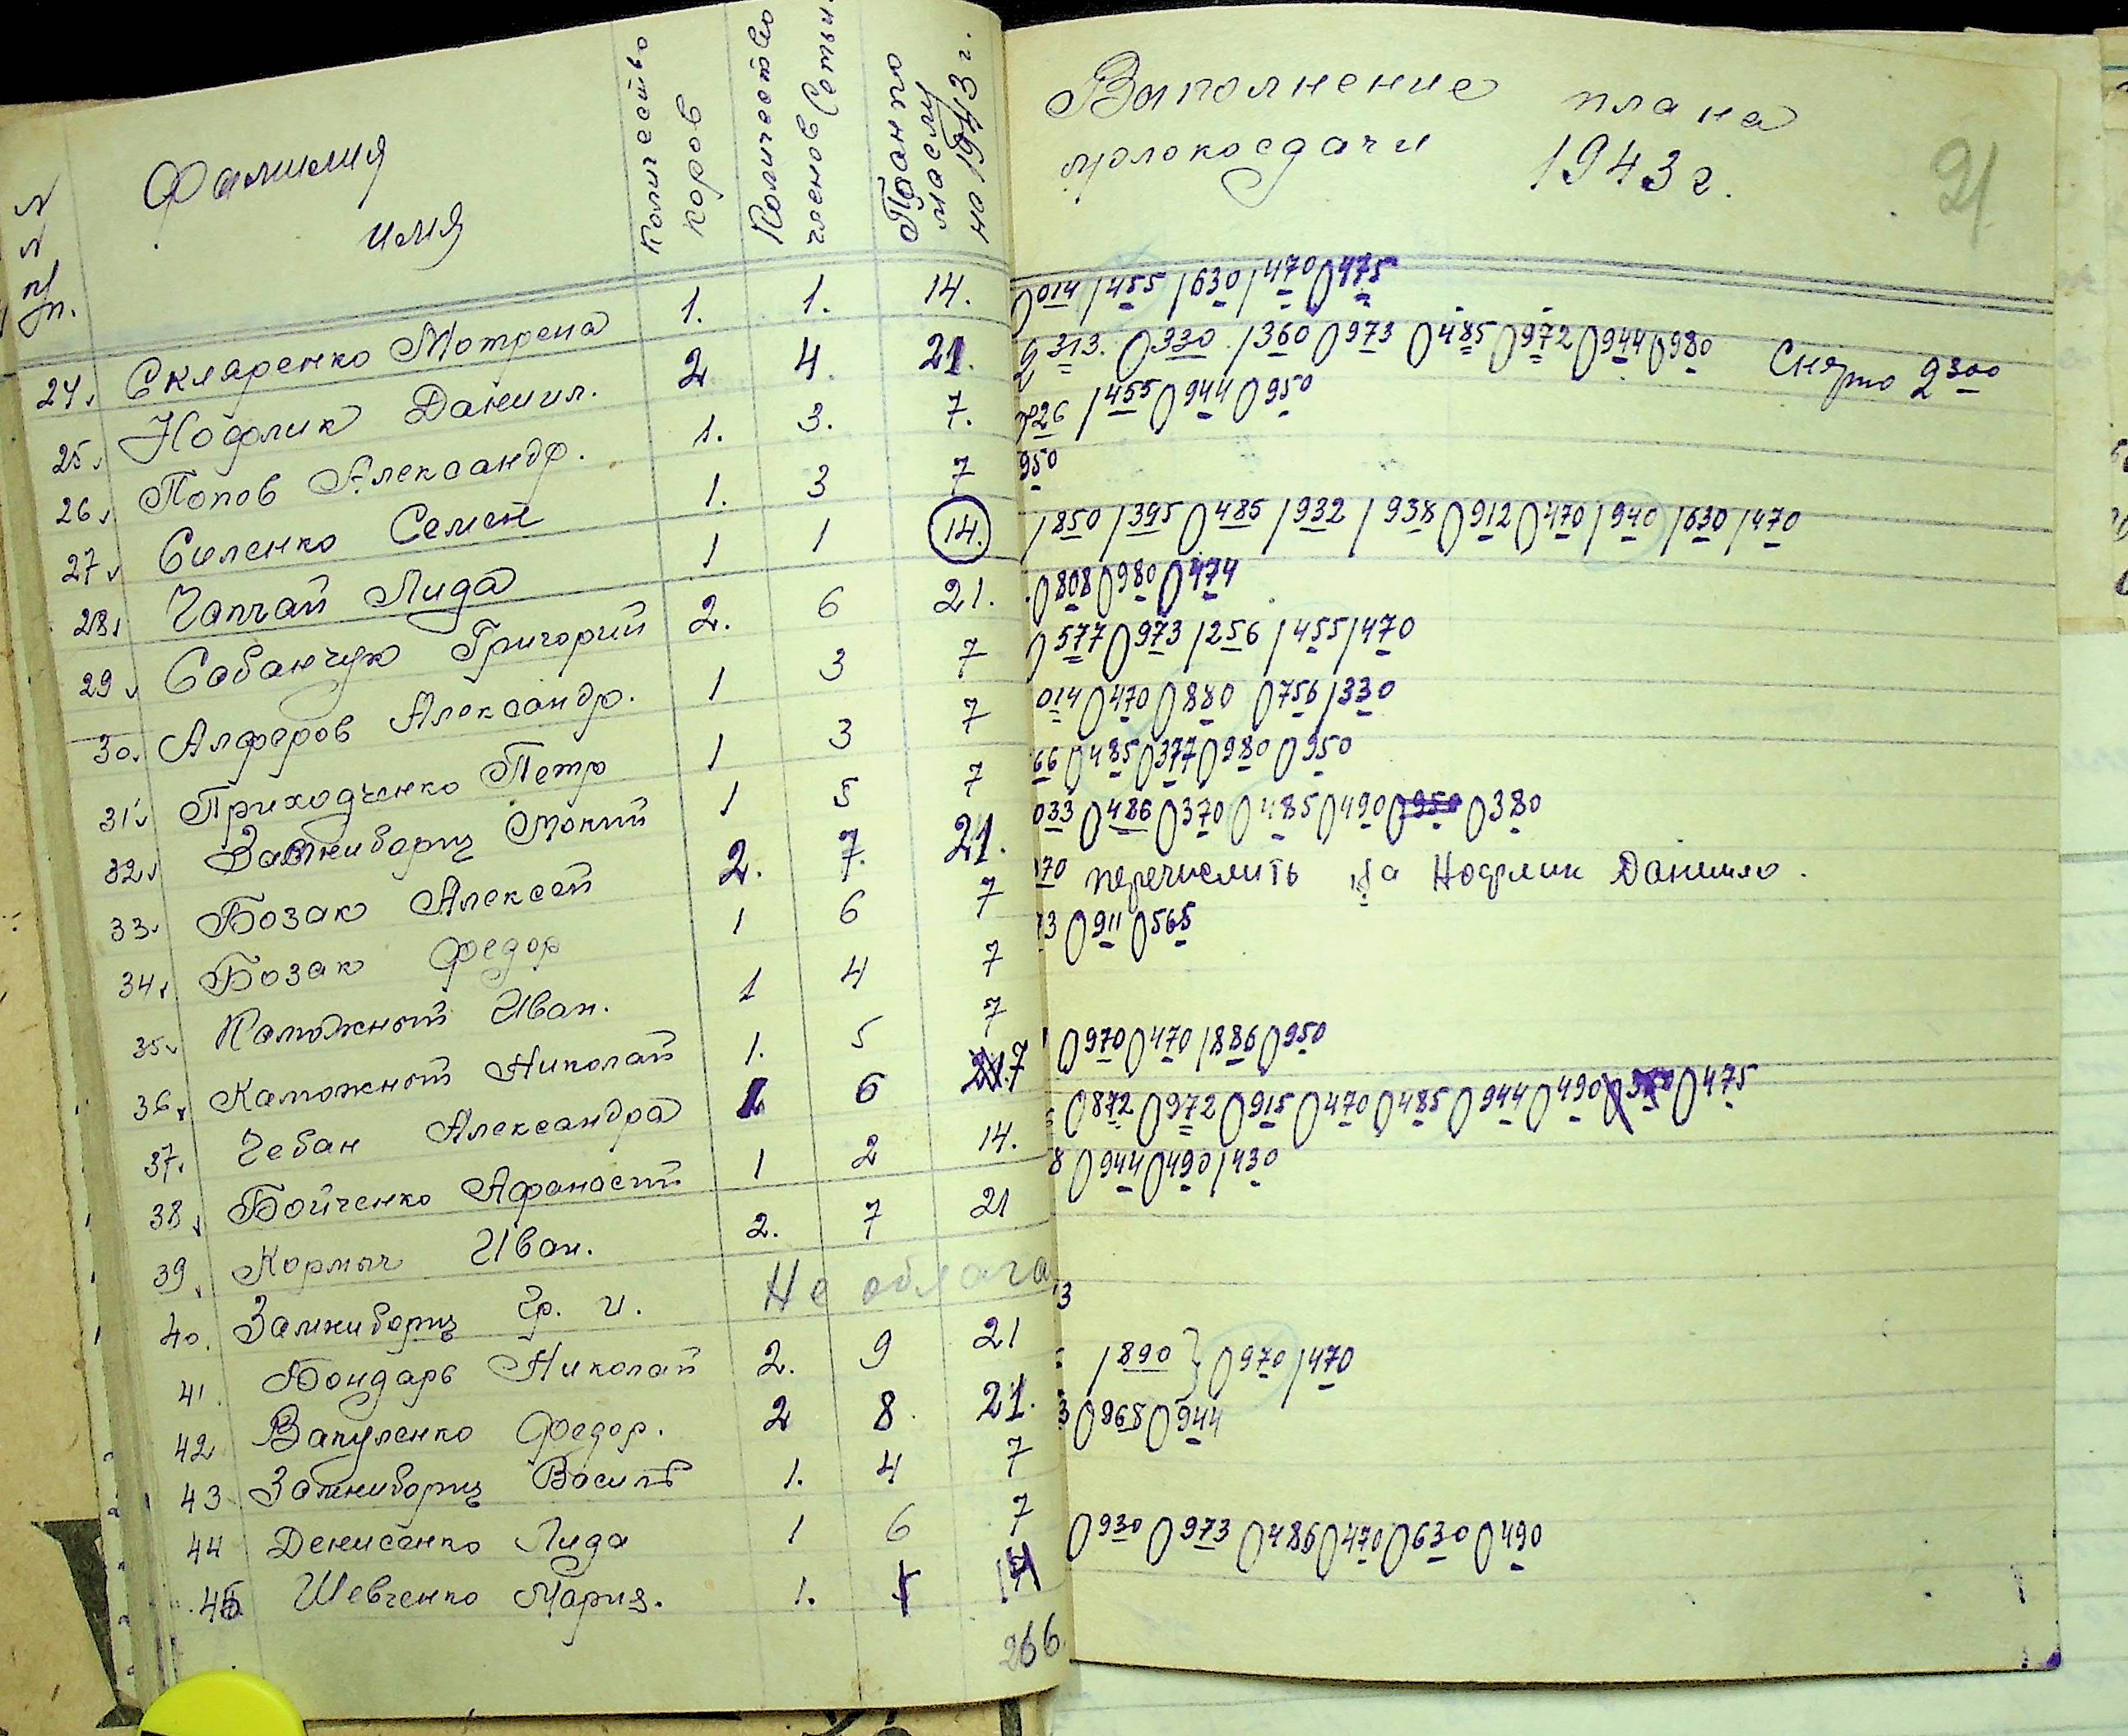 N N п/п. Фамилия имя Количество коров Количество членов Семьи План по маслу на 1943 г.
24. Скляренко Мотрена 1. 1. 14.
25. Нофлик Даниил. 2 4. 21.
26. Попов Александр. 1. 3. 7.
27. Силенко Семен 1. 3 7
28. Чапчай Лида 1 1 14.
29. Сабанчук Григорий 2. 6 21.
30. Алферов Александр. 1 3 7
31. Приходченко Петр 1 3 7
32. Замниборщ Мокий 1 5 7
33. Бозак Алексей 2. 7. 21.
34. Бозак Федор 1 6 7
35. Каможный Иван. 1 4 7
36. Каможный Николай 1. 5 7
37. Чебан Александра 1 6 7
38. Бойченко Афанасий 1 2 14.
39. Кормыч Иван. 2. 7 21
40. Замниборщ Гр. И. Не облага
41. Бондарь Николай 2. 9 21
42. Вакуленко Федор. 2 8. 21.
43. Замниборщ Василь 1. 4 7
44 Денисенко Лида 1 6 7
45 Шевченко Мария. 1. 1 14
266
Выполнение плана
молокосдачи 1943 г.
21
0014 1455 1630 1470 0475
2313. 0330 1360 0973 0485 0972 0944 0980 Снято 2300
726 1455 0944 0950
950
1850 1395 0485 1932 1938 0912 0470 1940 1630 1470
0808 0980 0474
0577 0973 1256 1455 1470
014 0470 0880 0756 1330
66 0485 0377 0980 0950
033 0486 0370 0485 0490 0950 0380
70 перечислить на Нофлик Данило.
13 0911 0565
0970 0470 1886 0950
0872 0972 0915 0470 0485 0944 0490 0475
8 0944 0490 1430
13
1890 } 0970 1470
3 0968 0944
0930 0973 0486 0470 0630 0490